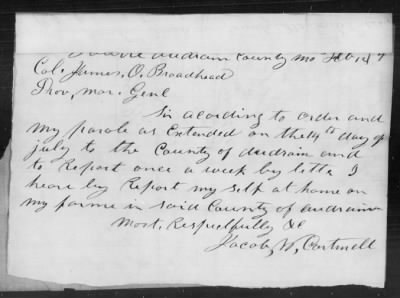 Audrain County Mo
Col. James, O. Broadhead
Prov, mar. Genl
Sir acording to order and
my parole as Extended on the 14th day of
july to the County of Audrain and
to Report once a week by letter I
heare by Report my self at home on
my farme in said County of Audrain
Most, Respectfully &c
Jacob, W, Cartmell